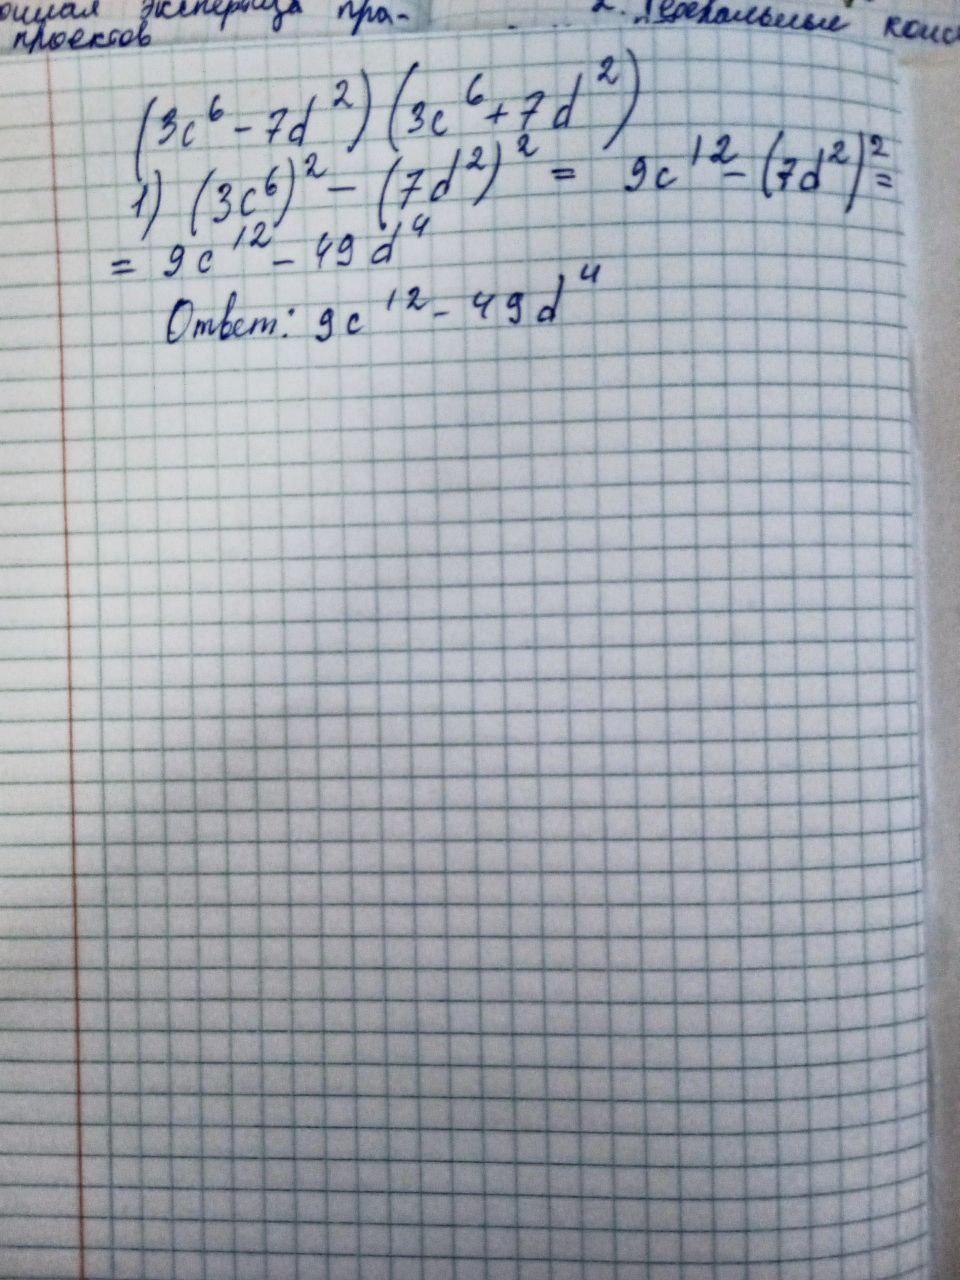 экспертиза пра-
проектов
2. Федеральные конс
(3c⁶ - 7d²)(3c⁶ + 7d²)
1) (3c⁶)² - (7d²)² = 9c¹² - (7d²)² =
= 9c¹² - 49d⁴
Ответ: 9c¹² - 49d⁴